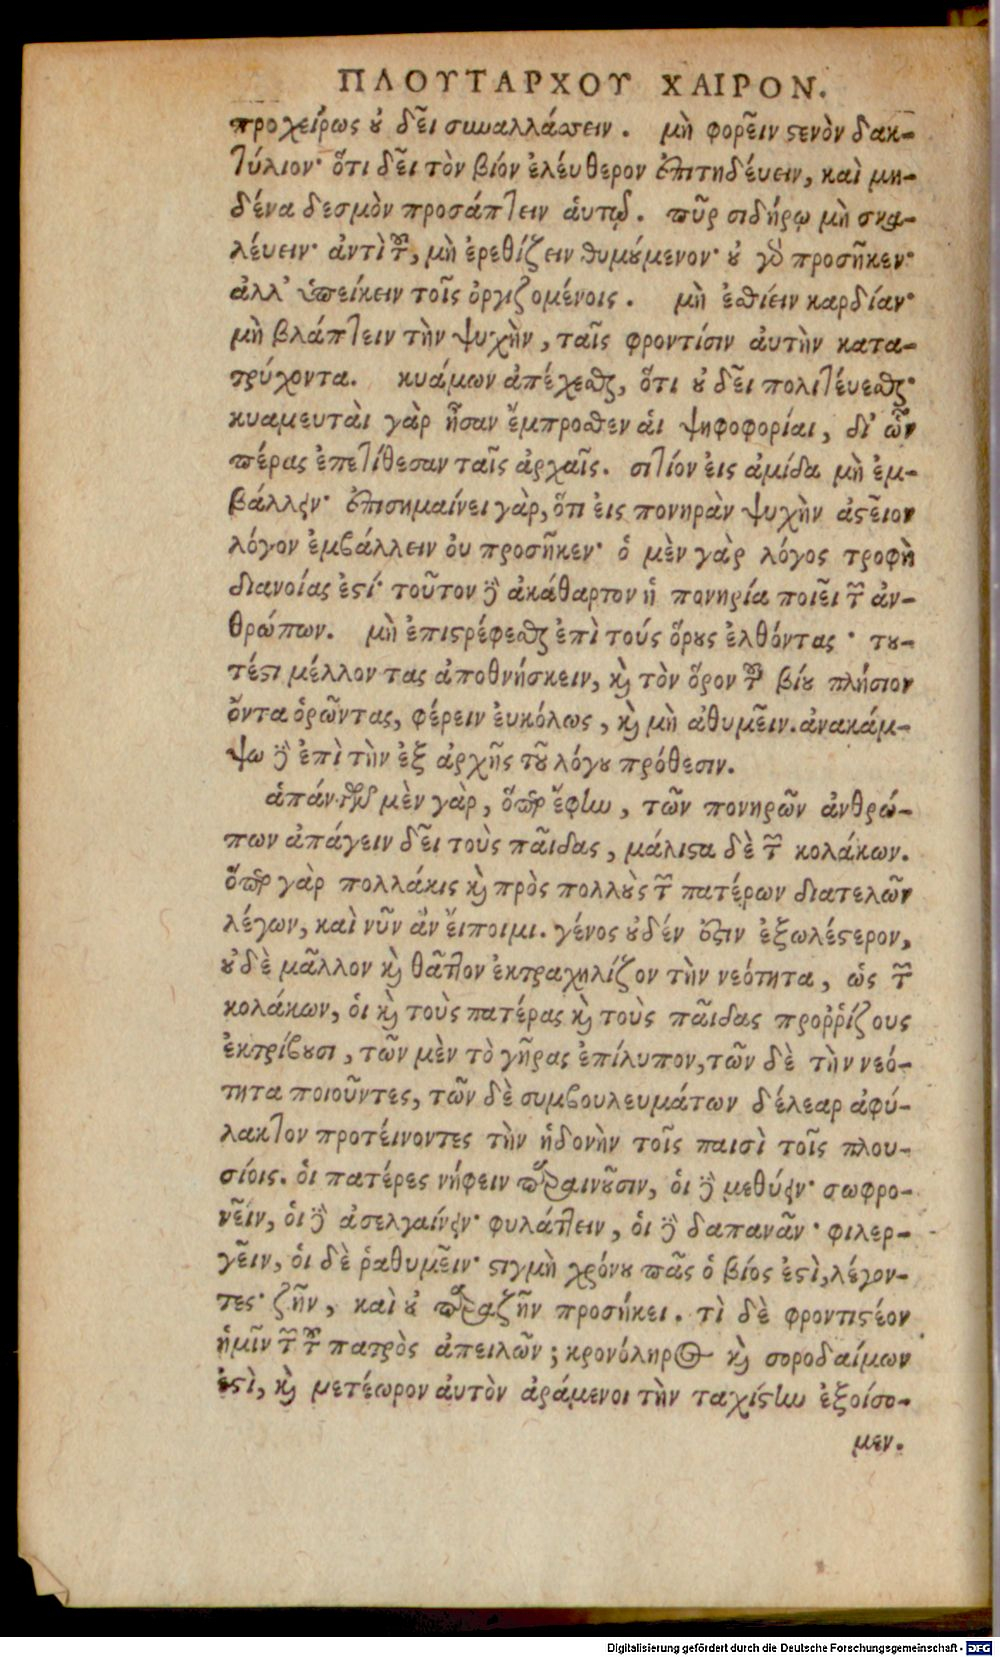 ΠΛΟΥΤΑΡΧΟΥ ΧΑΙΡΟΝ.
προχείρως ȣ δεῖ συναλλάσσειν. μὴ φορεῖν ϛενὸν δακ-
τύλιον· ὅτι δεῖ τὸν βίον ἐλέυθερον ἐπιτηδέυειν, καὶ μη-
δένα δεσμὸν προσάπτειν ἁυτῷ. πῦρ σιδήρῳ μὴ σκα-
λέυειν· ἀντὶ τοῦ, μὴ ἐρεθίζειν θυμȣ́μενον· ȣ γὰρ προσῆκεν·
ἀλλ' ὑπείκειν τοῖς ὀργιζομένοις. μὴ ἐσθίειν καρδίαν·
μὴ βλάπτειν τὴν ψυχὴν, ταῖς φροντίσιν ἀυτὴν κατα-
τρύχοντα. κυάμων ἀπέχεσθαι, ὅτι ȣ δεῖ πολιτέυεσθαι·
κυαμευτὰι γὰρ ἦσαν ἔμπροσθεν ἁι ψηφοφορίαι, δι' ὧν
πέρας ἐπετίθεσαν ταῖς ἀρχαῖς. σιτίον ἐις ἀμίδα μὴ ἐμ-
βάλλειν· ἐπισημαίνει γὰρ, ὅτι ἐις πονηρὰν ψυχὴν ἀϛεῖον
λόγον ἐμβάλλειν ὀυ προσῆκεν· ὁ μὲν γὰρ λόγος τροφὴ
διανοίας ἐϛί· τοῦτον δὲ ἀκάθαρτον ἡ πονηρία ποιεῖ τῶν ἀν-
θρώπων. μὴ ἐπιϛρέφεσθαι ἐπὶ τούς ὅρȣς ἐλθόντας· τȣ-
τέϛι μέλλοντας ἀποθνήσκειν, καὶ τὸν ὅρον τοῦ βίȣ πλήσιον
ὄντα ὁρῶντας, φέρειν ἐυκόλως, καὶ μὴ ἀθυμεῖν. ἀνακάμ-
ψω δὲ ἐπὶ τὴν ἐξ ἀρχῆς τȣ͂ λόγȣ πρόθεσιν.
ἁπάντων μὲν γὰρ, ὅπερ ἔφην, τῶν πονηρῶν ἀνθρώ-
πων ἀπάγειν δεῖ τοὺς παῖδας, μάλιϛα δὲ τῶν κολάκων.
ὅπερ γὰρ πολλάκις καὶ πρὸς πολλȣ̀ς τῶν πατέρων διατελῶν
λέγων, καὶ νῦν ἂν ἔιποιμι. γένος ȣδέν ἐϛιν ἐξωλέϛερον,
ȣδὲ μᾶλλον καὶ θᾶττον ἐκτραχηλίζον τὴν νεότητα, ὡς τῶν
κολάκων, ὁι καὶ τοὺς πατέρας καὶ τοὺς παῖδας προῤῥίζους
ἐκτρίβȣσι, τῶν μὲν τὸ γῆρας ἐπίλυπον, τῶν δὲ τὴν νεό-
τητα ποιοῦντες, τῶν δὲ συμβουλευμάτων δέλεαρ ἀφύ-
λακτον προτέινοντες τὴν ἡδονὴν τοῖς παισὶ τοῖς πλου-
σίοις. ὁι πατέρες νήφειν παραινȣ͂σιν, ὁι δὲ μεθύειν· σωφρο-
νεῖν, ὁι δὲ ἀσελγαίνειν· φυλάττειν, ὁι δὲ δαπανᾶν· φιλερ-
γεῖν, ὁι δὲ ῥαθυμεῖν· ϛιγμὴ χρόνȣ πᾶς ὁ βίος ἐϛὶ, λέγον-
τες· ζῆν, καὶ ȣ παραζῆν προσήκει. τὶ δὲ φροντιϛέον
ἡμῖν τῶν τοῦ πατρὸς ἀπειλῶν; κρονόληρος καὶ σοροδαίμων
ἐϛὶ, καὶ μετέωρον ἀυτὸν ἀράμενοι τὴν ταχίϛην ἐξοίσο-
μεν.
Digitalisierung gefördert durch die Deutsche Forschungsgemeinschaft - DFG